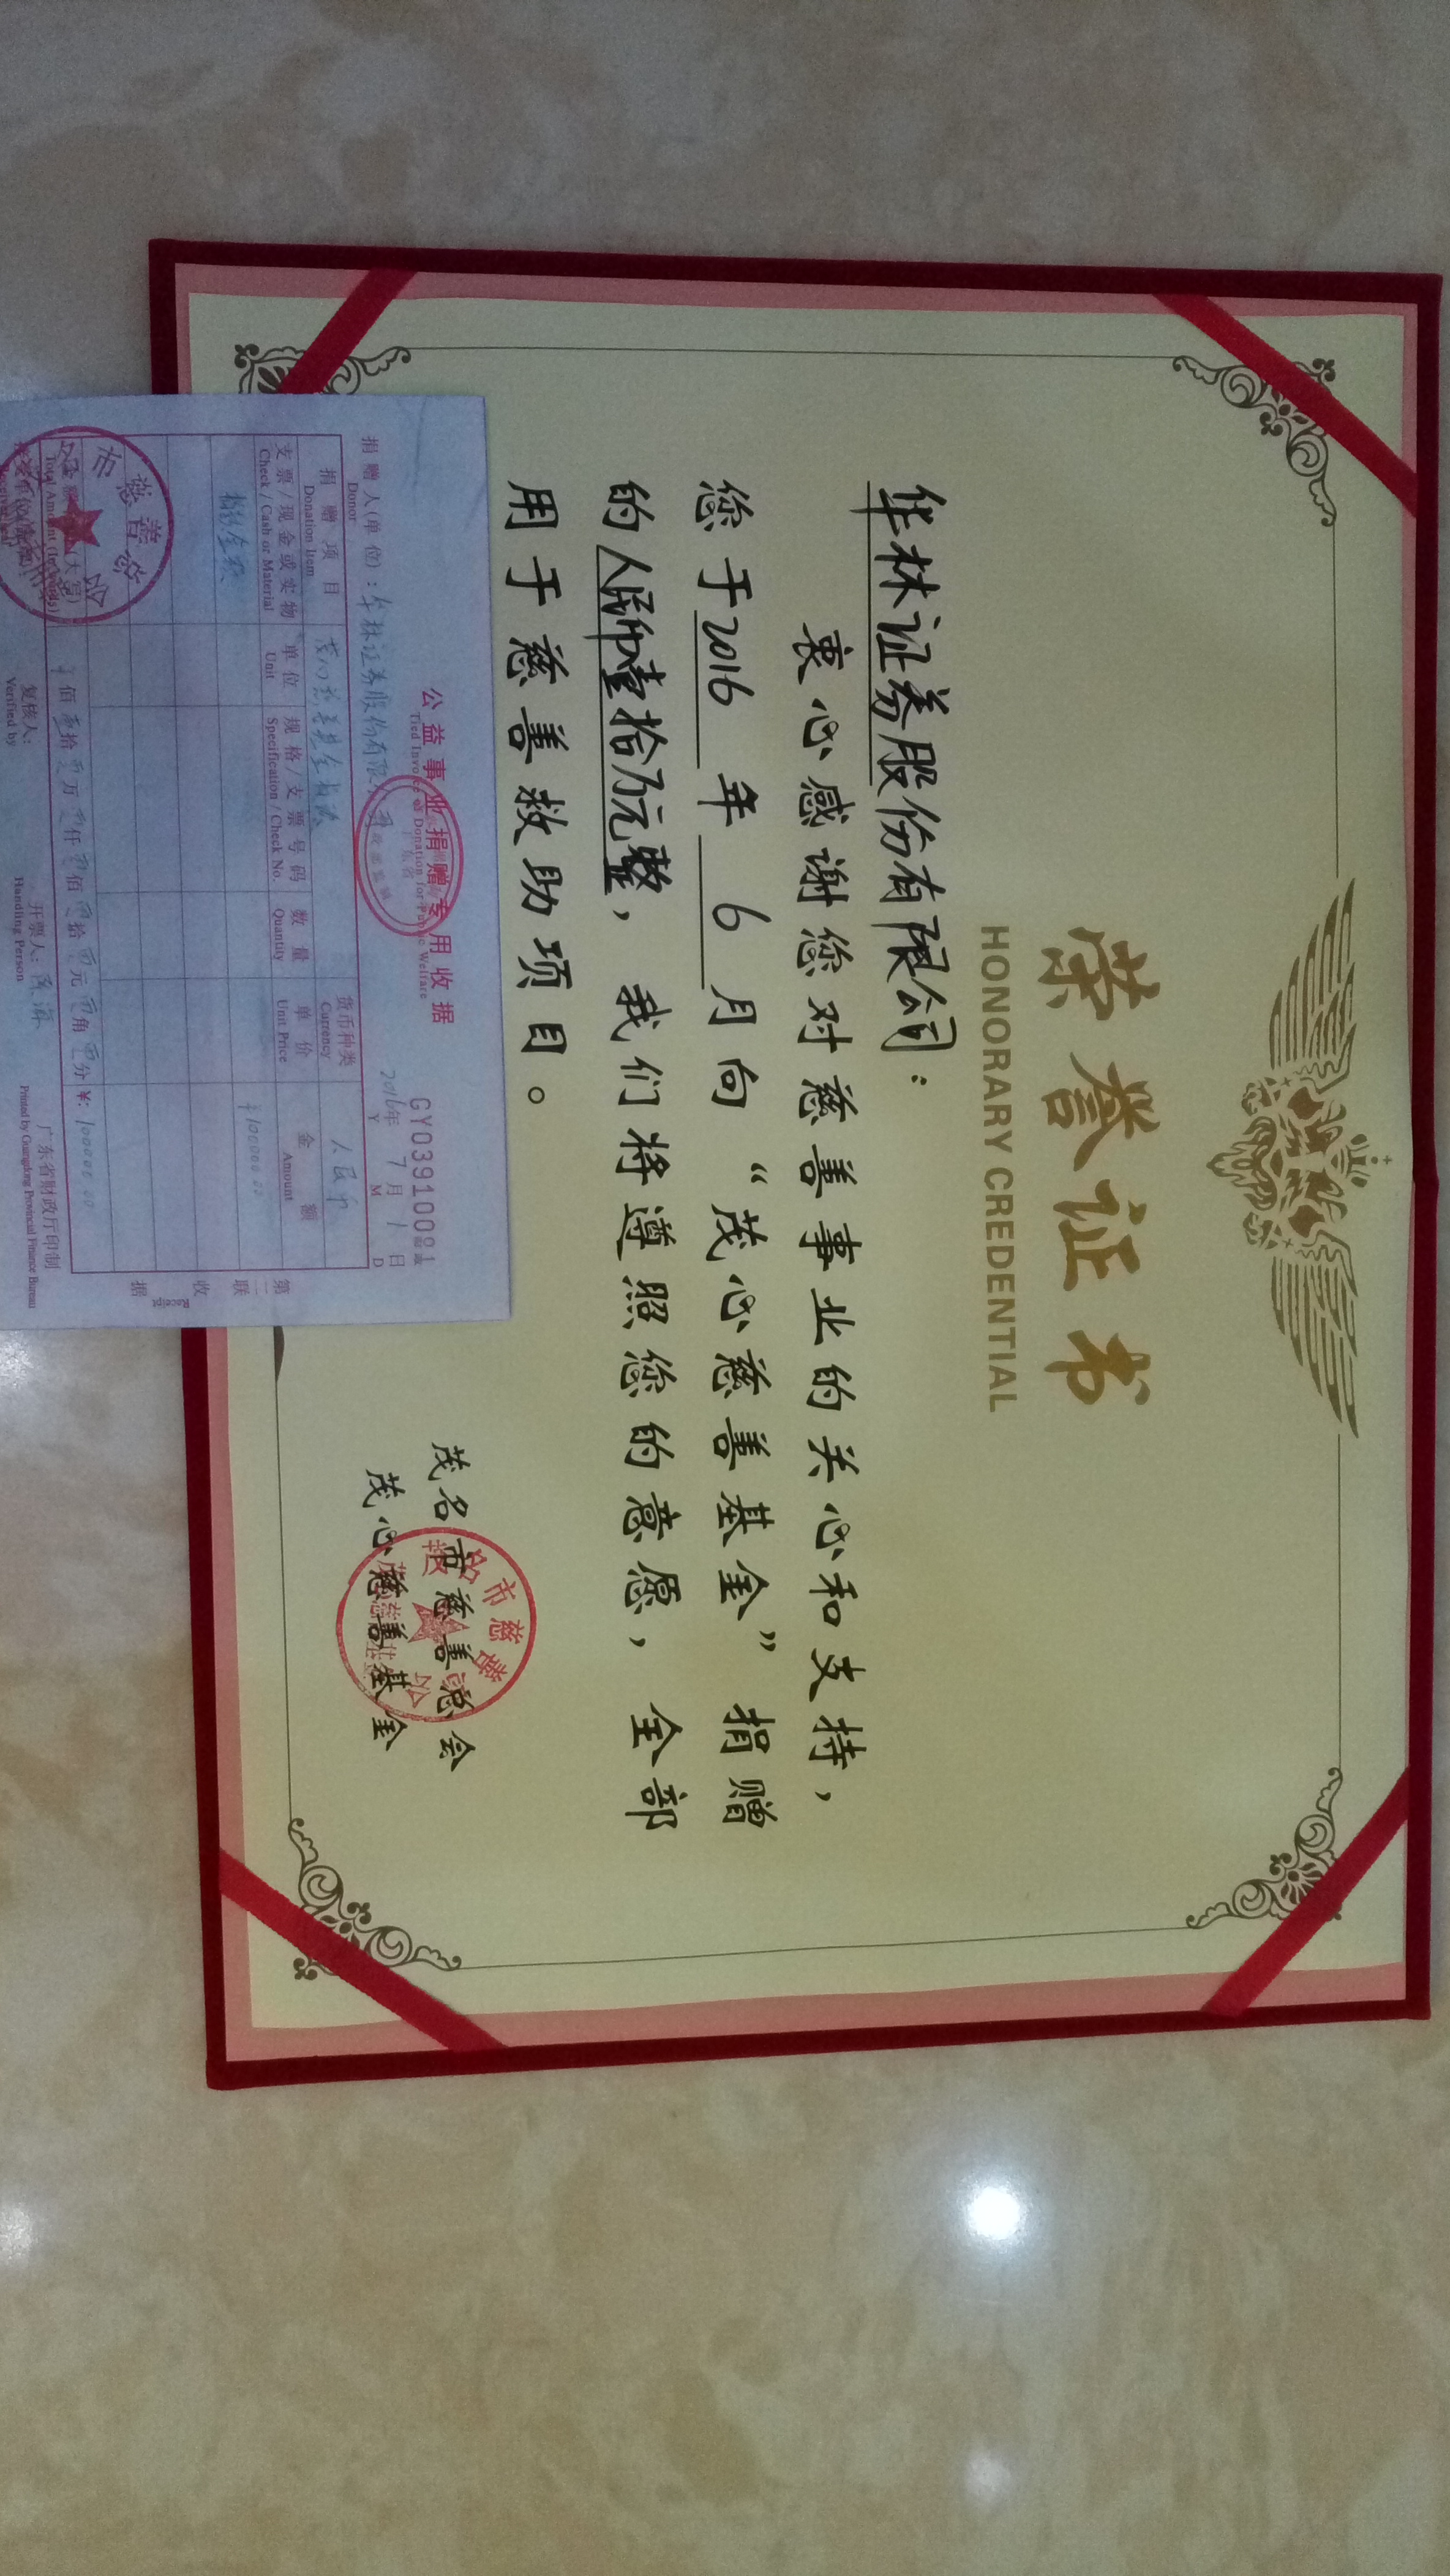 荣誉证书
HONORARY CREDENTIAL
华林证券股份有限公司:
衷心感谢您对慈善事业的关心和支持,
您于2016年6月向“茂心慈善基金”捐赠
的人民币壹拾万元整,我们将遵照您的意愿,全部
用于慈善救助项目。
茂名市慈善总会
茂心慈善基金
公益事业捐赠专用收据
Tied Invoice of Donation for Public Welfare
GY03910001
捐赠人(单位):华林证券股份有限
Donor
2016年7月1日
Y M D
捐赠项目 货币种类 人民币
Donation Item Currency
支票/现金或实物 单位 规格/支票号码 数量 单价 金额
Check / Cash or Material Unit Specification / Check No. Quantity Unit Price Amount
捐款金额 ¥100000.00
佰壹拾零万零仟零佰零拾零元零角零分 ¥:100000.00
Total Amount (In Words)
复核人: 开票人: 广东省财政厅印制
Verified by Handling Person Printed by Guangdong Provincial Finance Bureau
第二联收据
市慈善总会